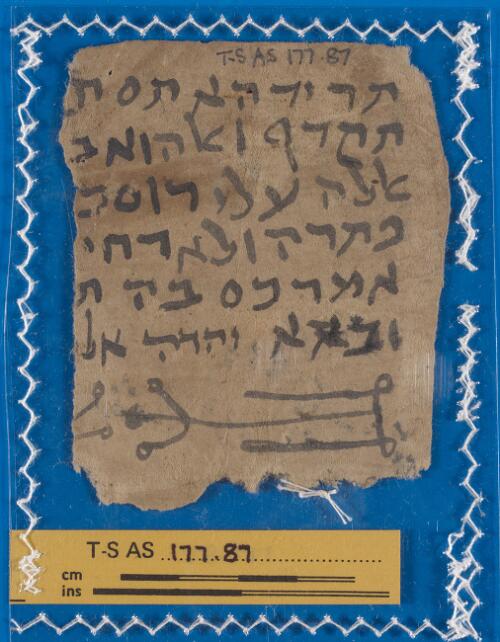 T-S AS 177.87
תרידהא תסת
תקדף ואהומ
אלה עלי רוס
כתרה ולא
אמרכס בה ת
יהדה אל
T-S AS 177.87
cm
ins